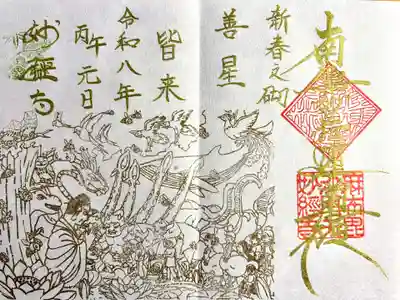 南無妙法蓮華經
新春之砌
善星
皆来
令和八年
丙午元日
妙經寺